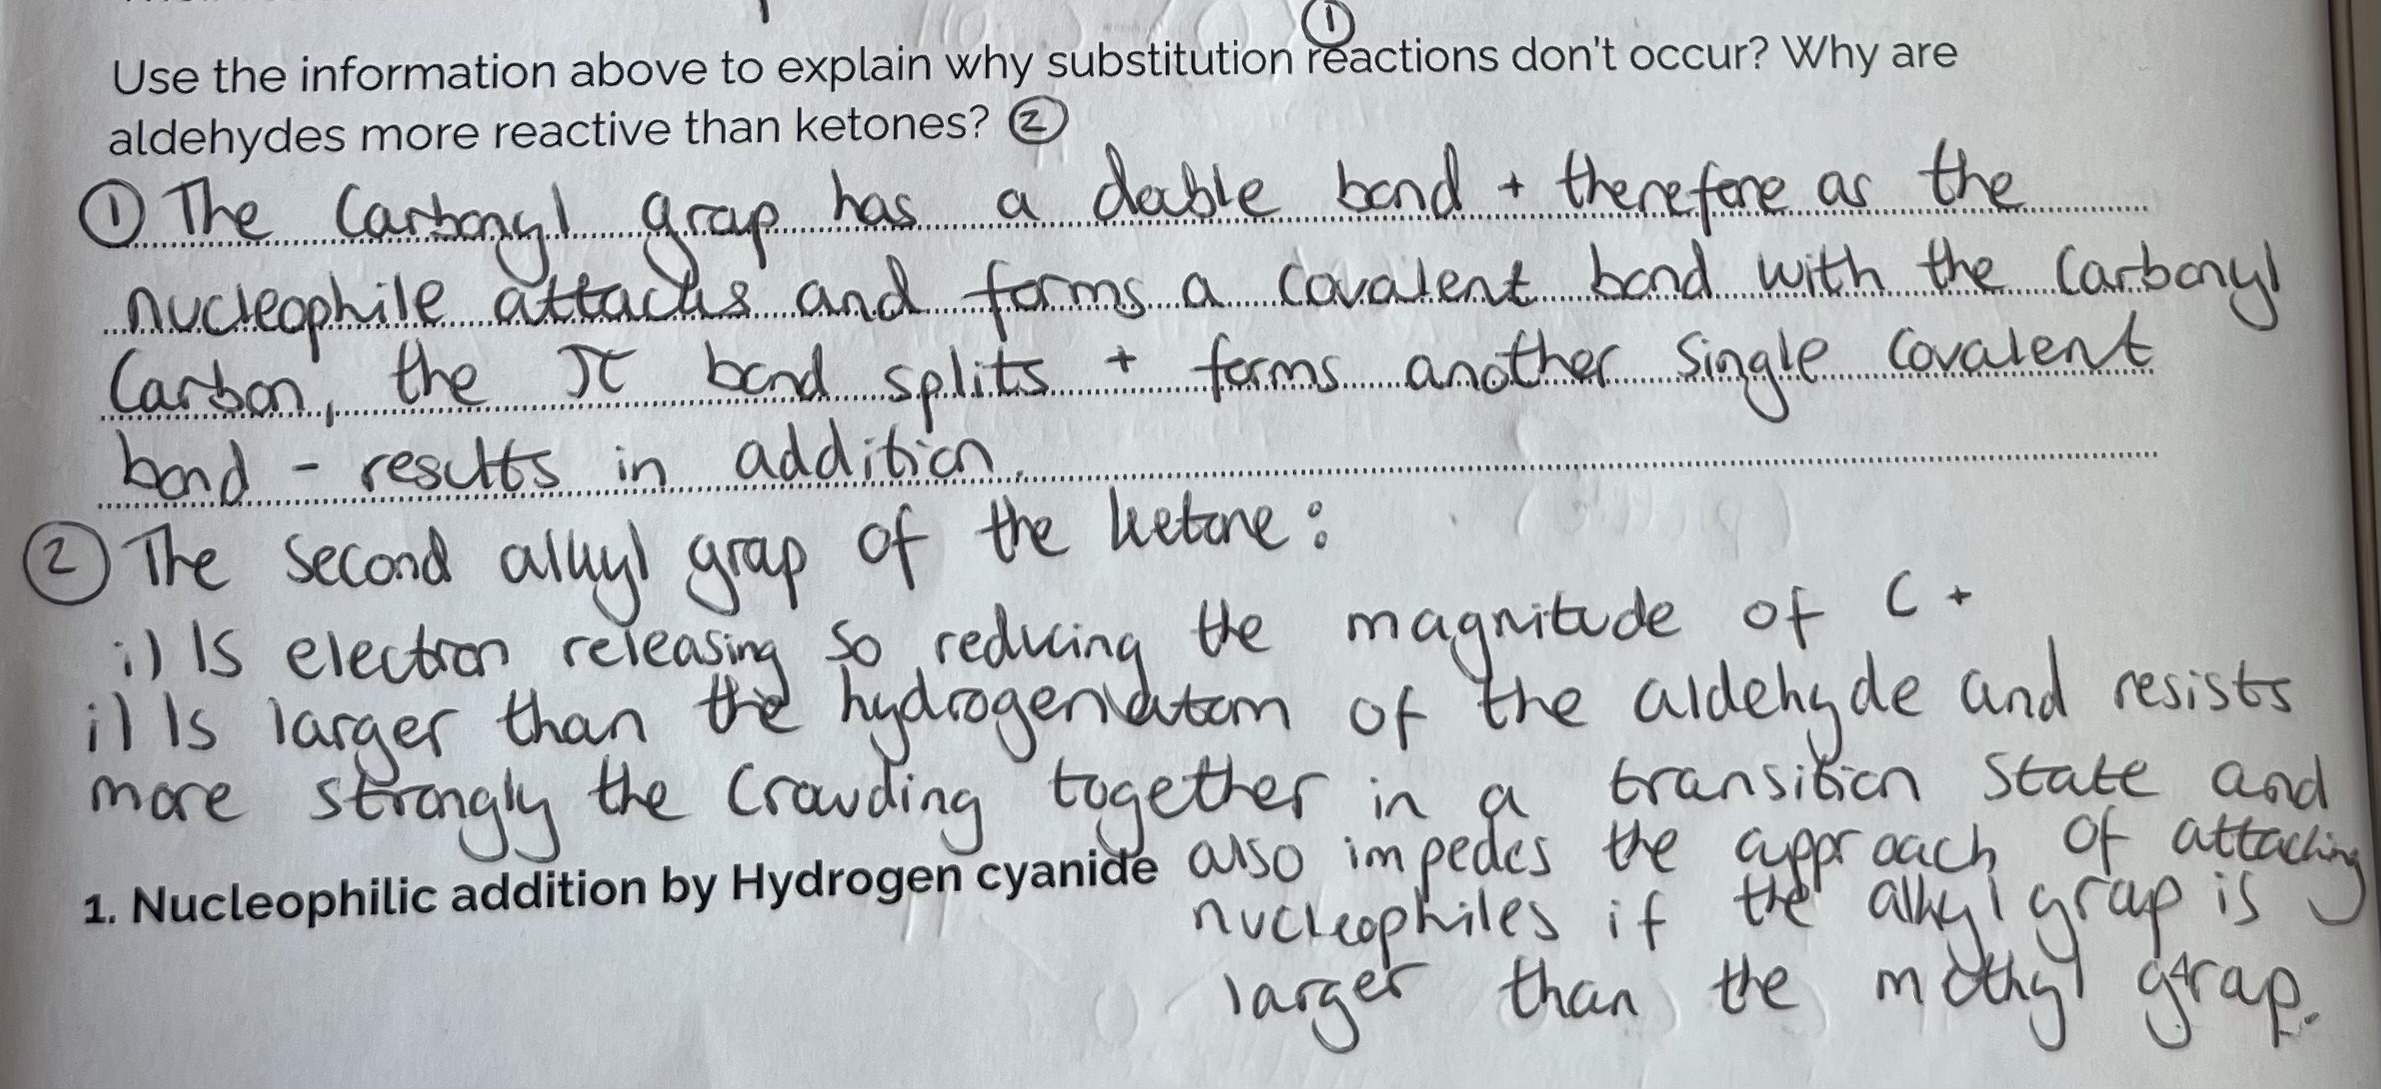 ①
Use the information above to explain why substitution reactions don't occur? Why are
aldehydes more reactive than ketones? ②
① The Carbonyl group has a double bond + therefore as the
nucleophile attacks and forms a covalent bond with the Carbonyl
Carbon, the π bond splits + forms another single covalent
bond - results in addition.
② The second alkyl group of the ketone:
i) Is electron releasing so reducing the magnitude of C +
i) Is larger than the hydrogen atom of the aldehyde and resists
more strongly the crowding together in a transition state and
also impedes the approach of attacking
1. Nucleophilic addition by Hydrogen cyanide
nucleophiles if the alkyl group is
larger than the methyl group.